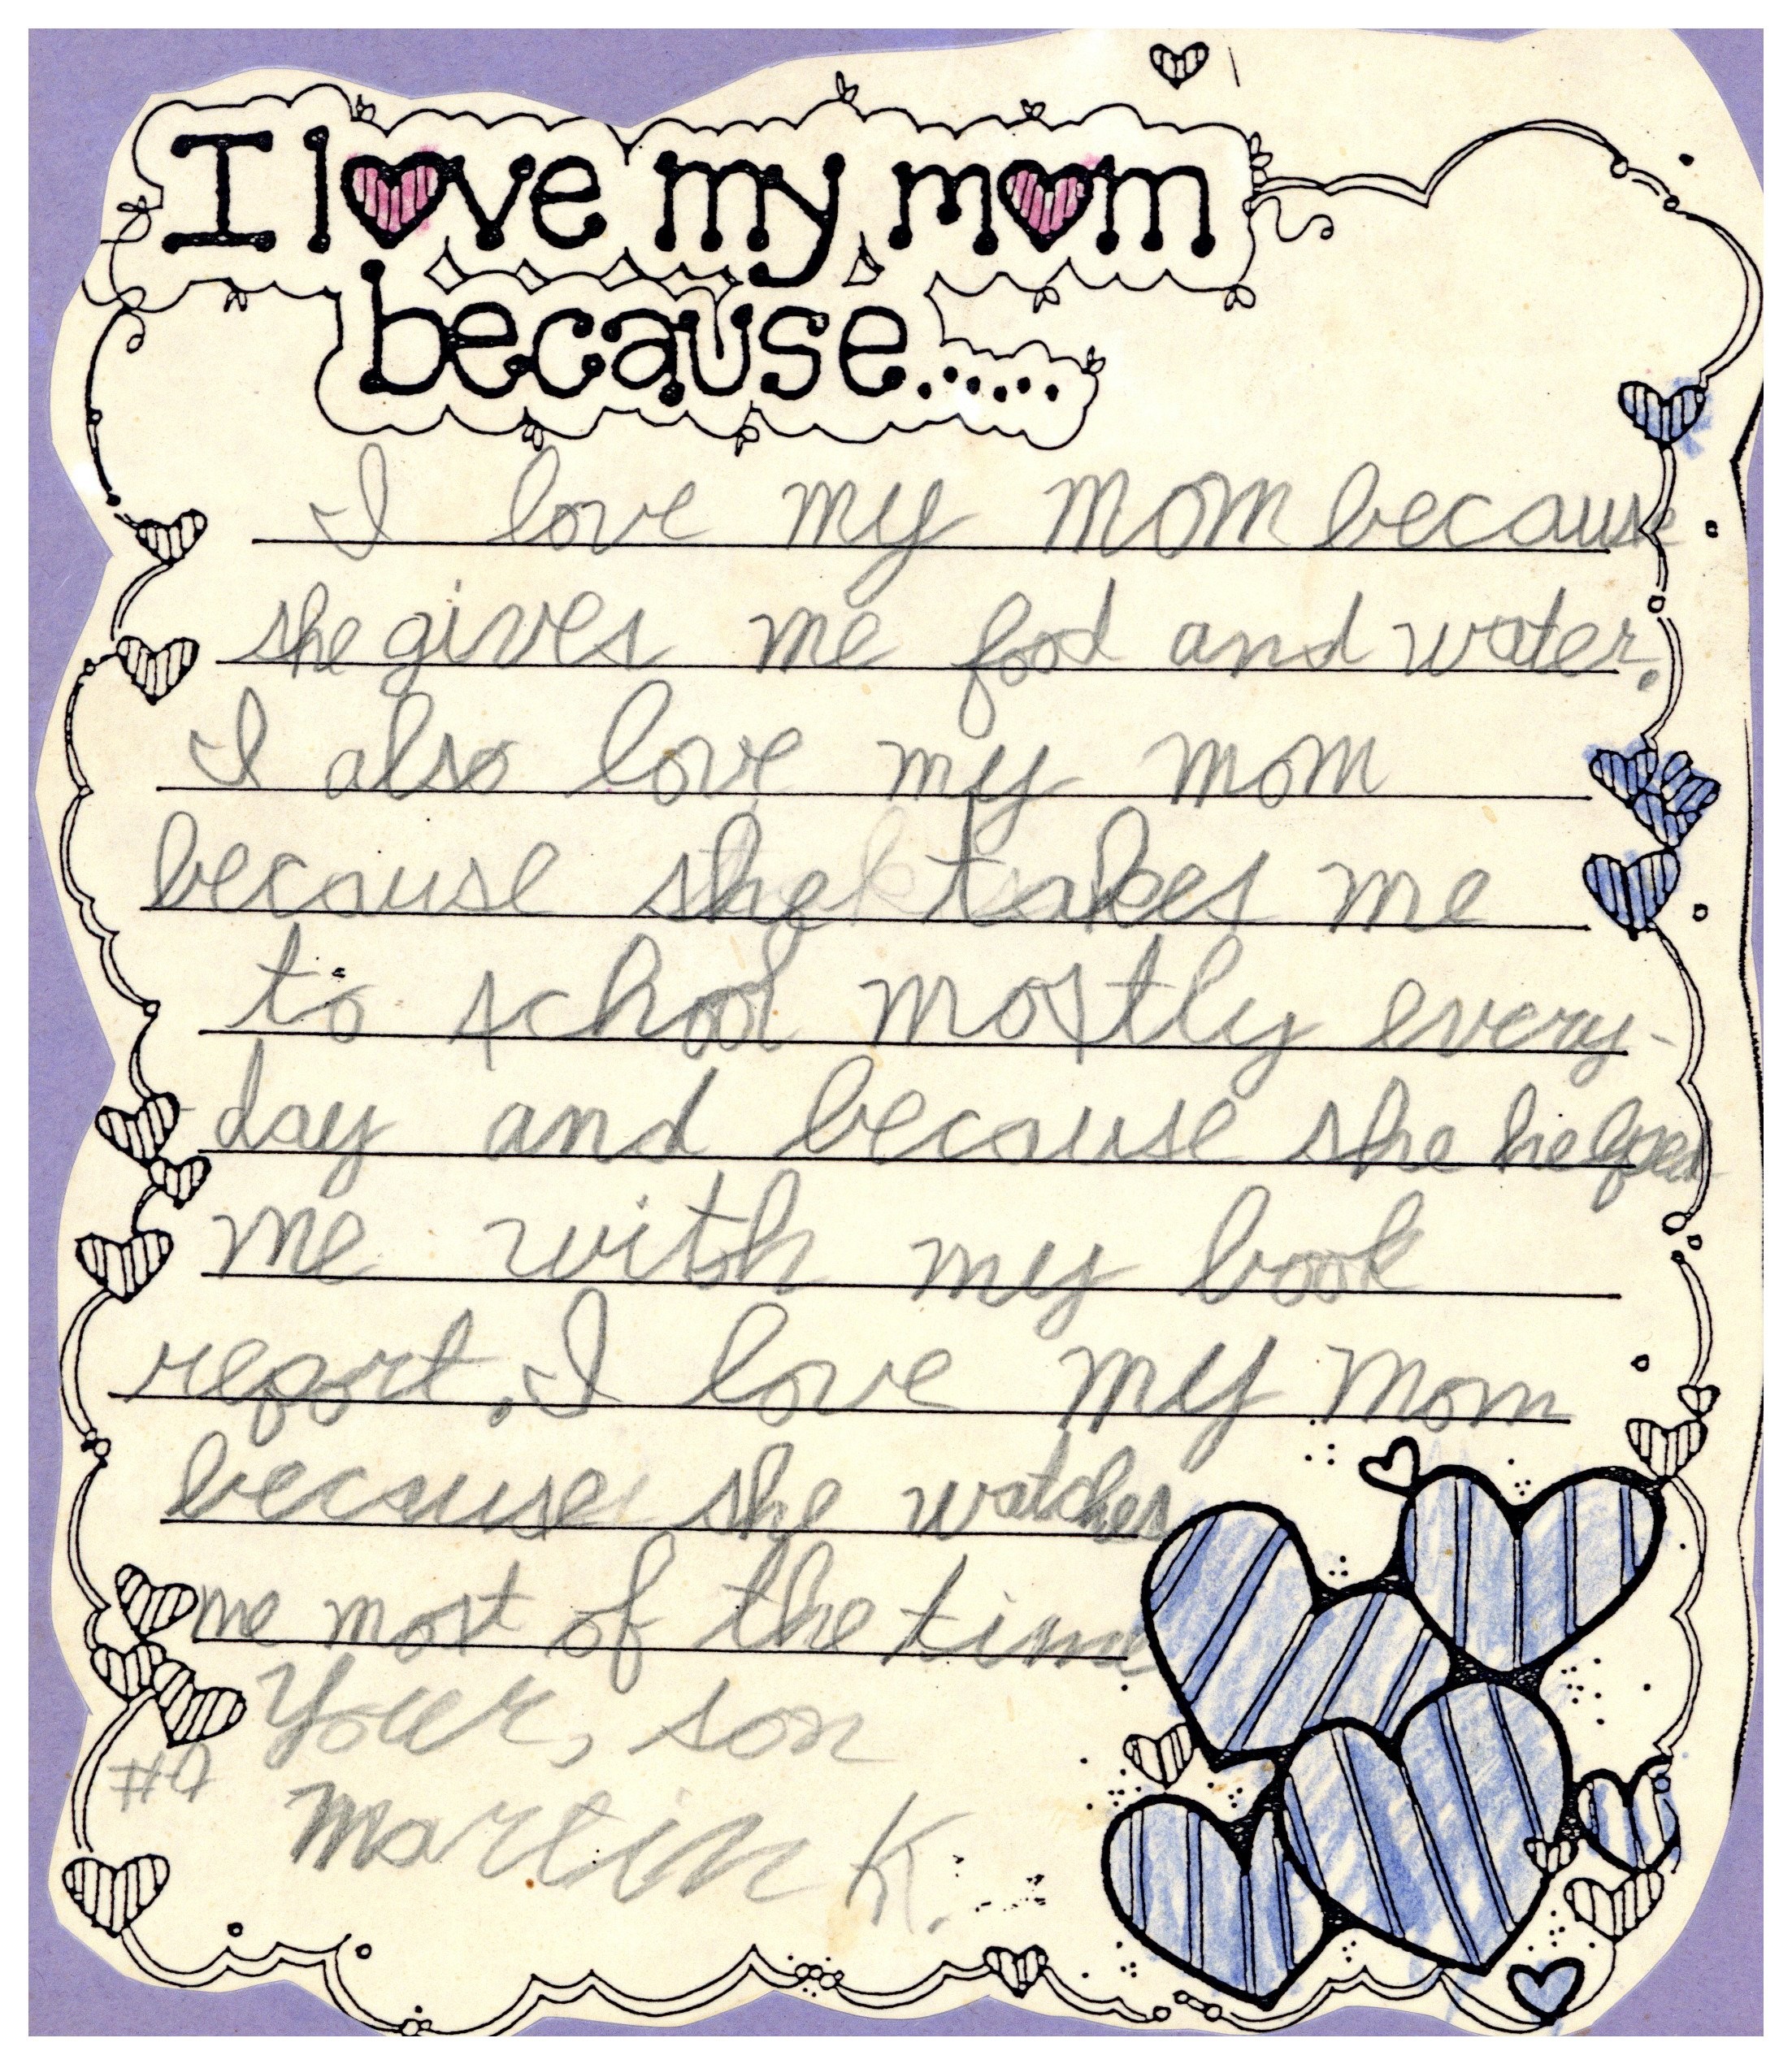 I love my mom
because.....
I love my mom because
she gives me food and water.
I also love my mom
because she takes me
to school mostly every-
day and because she helps
me with my book
report. I love my mom
because she watches
me most of the time
Your, son
#9
Martin K.